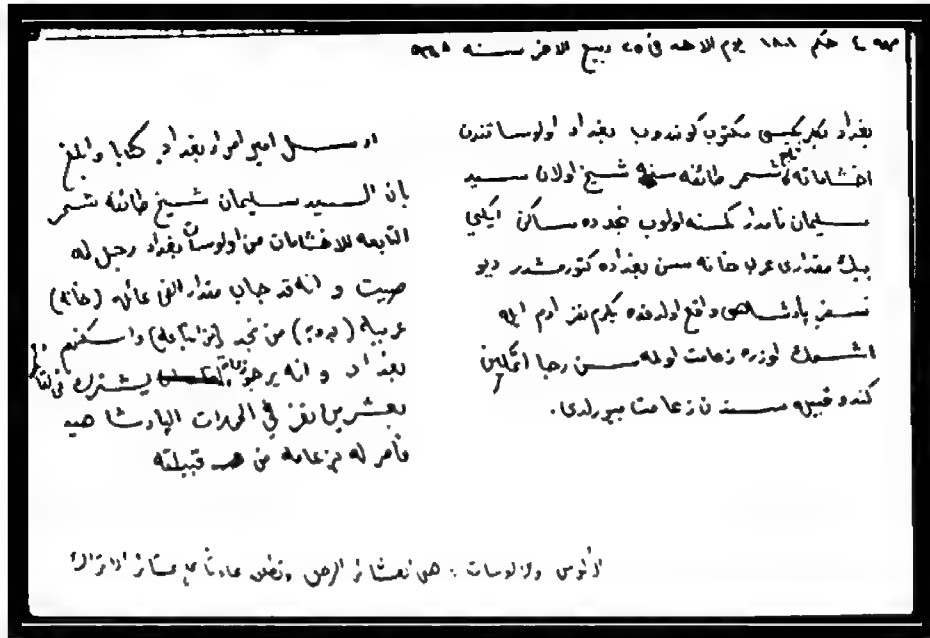 ٤ حكم ١٨٨١ يوم الاحد في ٢٥ ربيع الاخر سنة
بغداد بكلربكيسى مكتوب كوندروب بغداد اولوساتندن
اخشاماته تابع شمر طائفه سنه شيخ اولان سيد
سليمان نامدار كمسنه اولوب نجدده ساكن ايكي
بيك مقدارى عرب خانه سن بغداده كتورمشدر ديو
سفر پادشاهى واقع اولدقده يكرمى نفر ادم ايله
اشمك اوزره زعامت اولمه سن رجا اتمكين
كندو قبيله سندن زعامت بيورلدى.
ارسل امير امراء بغداد كتابا وابلغ
بان السيد سليمان شيخ طائفة شمر
التابعة للاخشامات من اولوسات بغداد رجل له
صيت و انه قد جاب مقدار الفي عائلة (خانه)
عربية (بدوية) من نجد واسكنهم
بغداد و انه يرجو زعامة يشترك
بعشرين نفر في الحملات البادشاهية
فأمر له بزعامة من قبيلته
الوس والاوسات : هي العشائر الرحل وتطلق عادتا على عشائر الاتراك